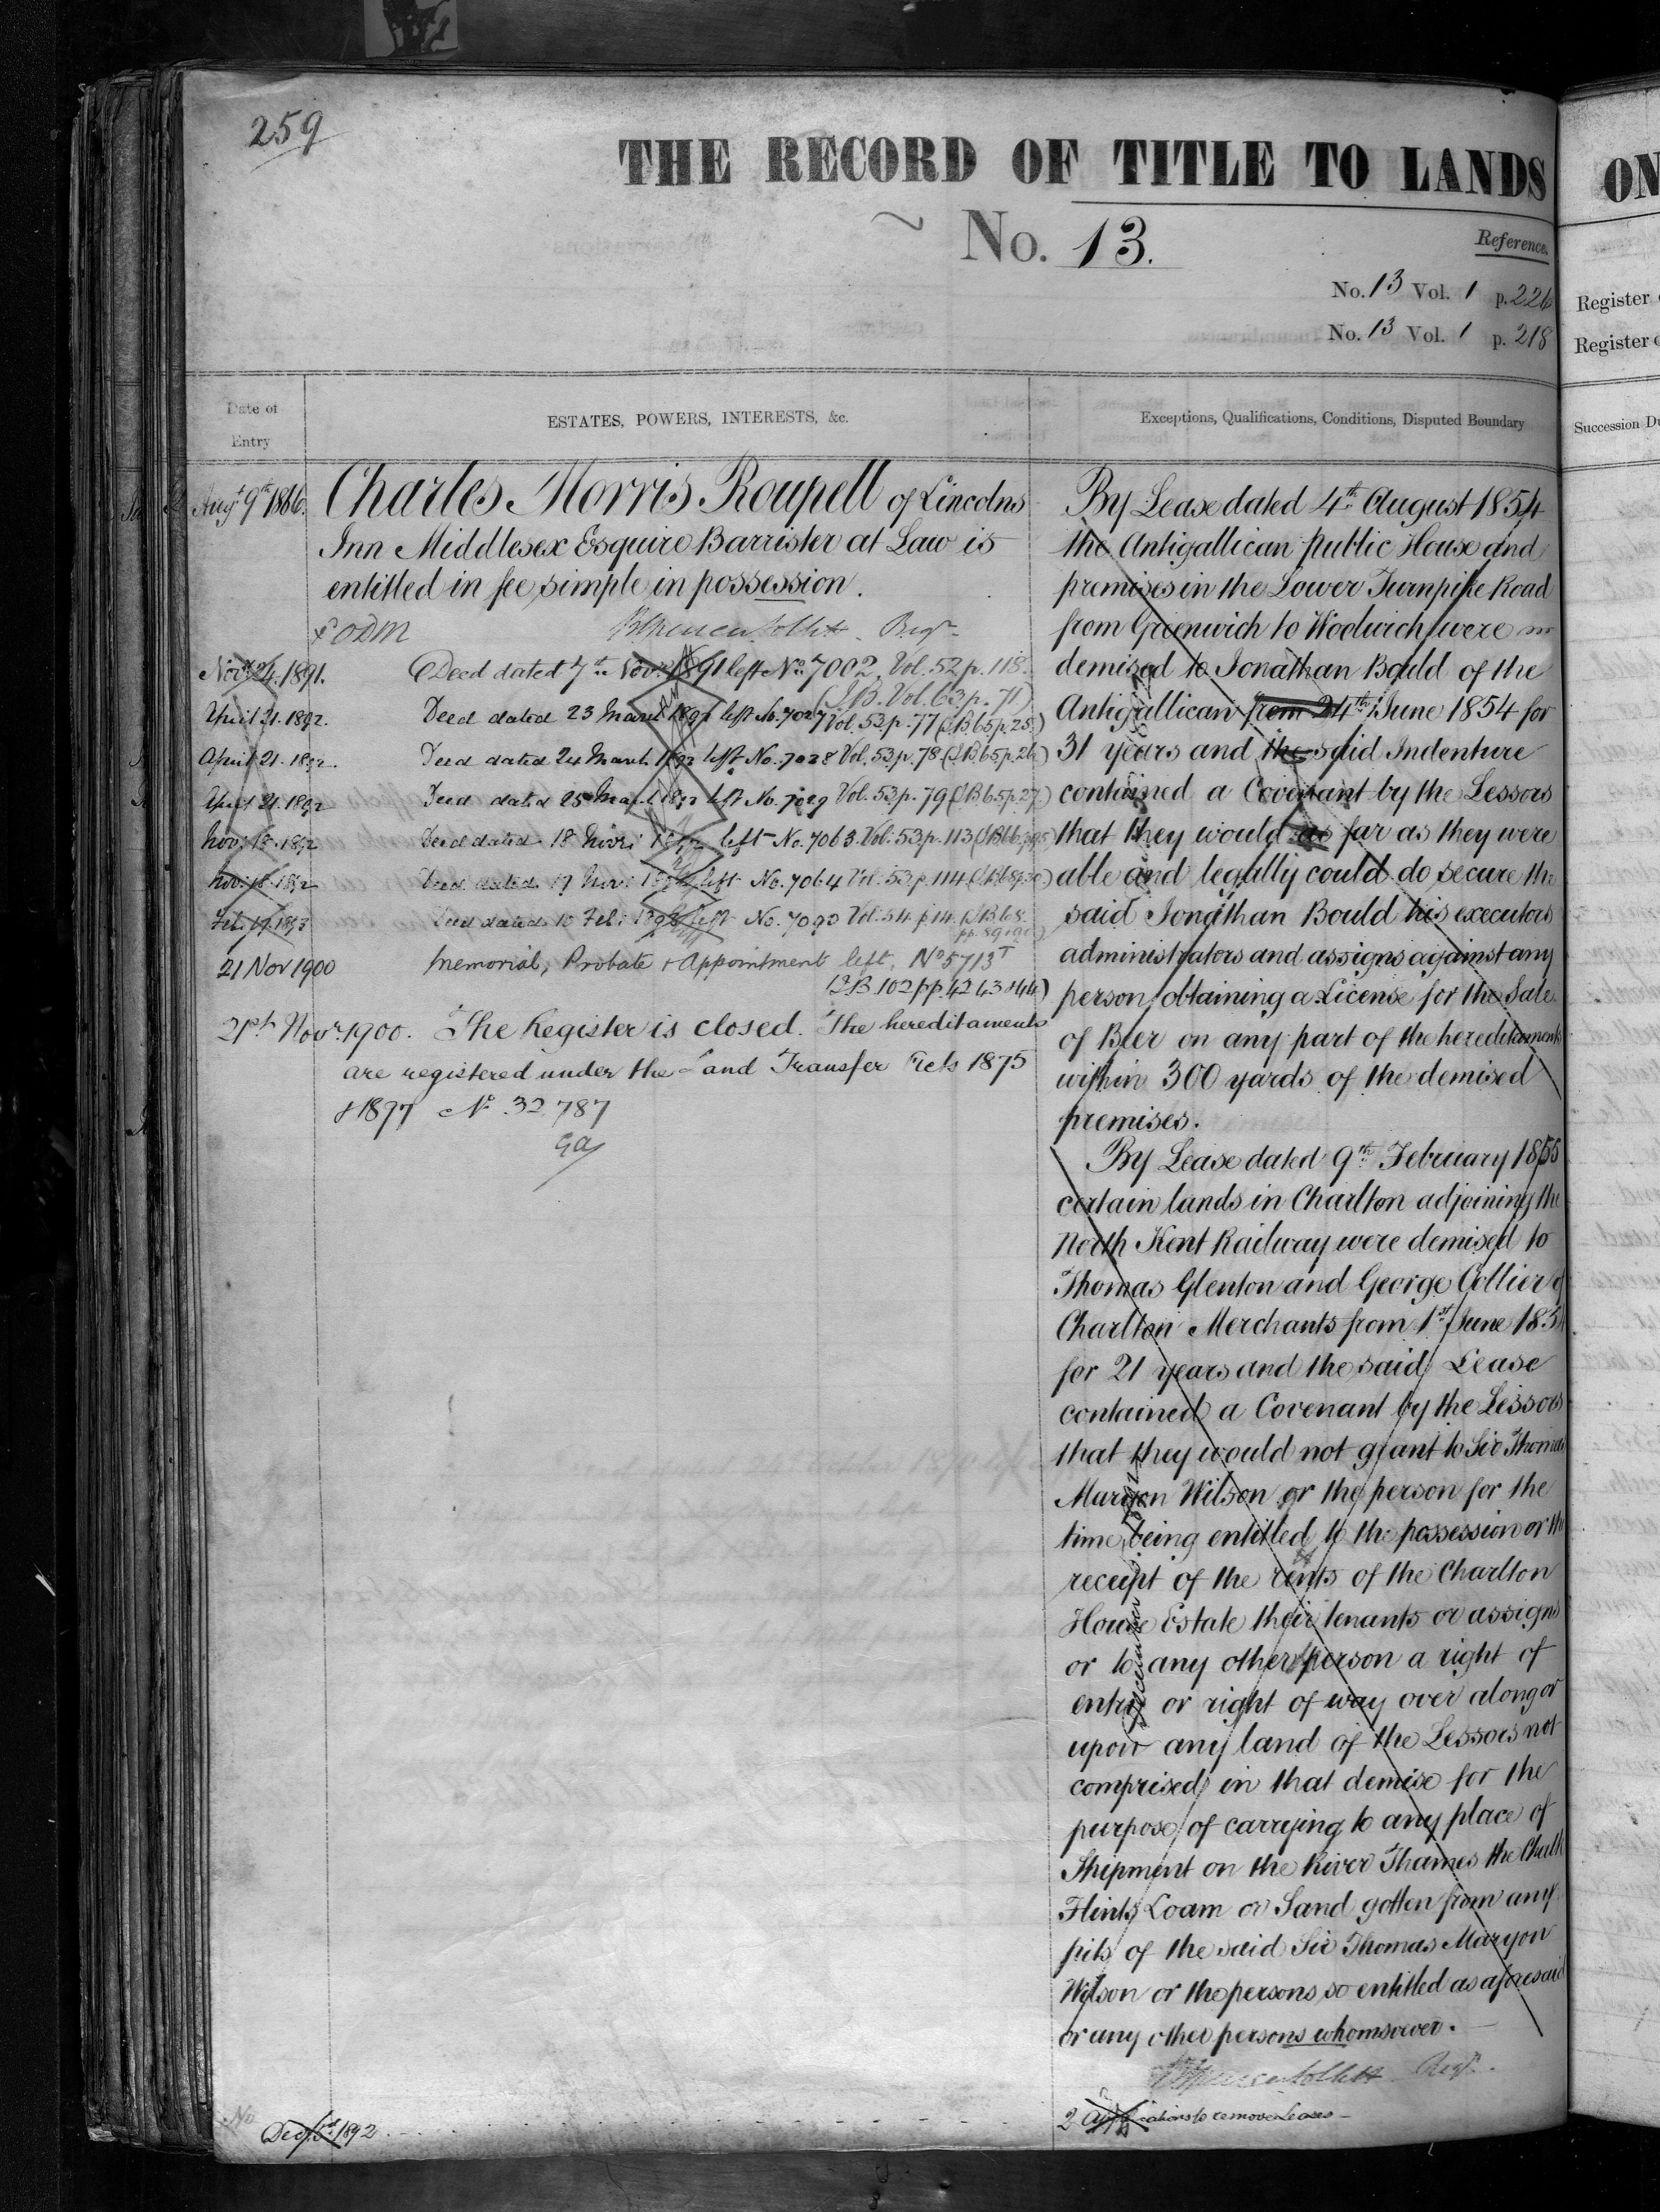 259
THE RECORD OF TITLE TO LANDS
ON
No. 13.
Reference.
No. 13 Vol. 1 p. 226
No. 13 Vol. 1 p. 218
Register
Register
Date of Entry
ESTATES, POWERS, INTERESTS, &c.
Exceptions, Qualifications, Conditions, Disputed Boundary
Succession Du
Augt 9th 1866.
Charles Morris Roupell of Lincolns
Inn Middlesex Esquire Barrister at Law is
entitled in fee simple in possession.
Regr
Novr 24. 1891. Deed dated 7th Novr 1891 left No. 7002. Vol. 52 p. 118.
(I.B. Vol. 63 p. 71)
April 21. 1892. Deed dated 23 March 1892 left No. 7027 Vol. 53. p. 77 (I.B. 65 p. 25.)
April 21. 1892. Deed dated 24 March 1892 left No. 7028 Vol. 53. p. 78. (I.B. 65 p. 26)
April 21. 1892 Deed dated 25 March 1892 left No. 7029 Vol. 53. p. 79 (I.B. 65 p. 27.)
Nov: 18. 1892 Deed dated 18 Novr: 1892 left No. 7063. Vol. 53. p. 113
Nov: 18. 1892 Deed dated 17 Nov: 1892 left No. 7064 Vol. 53. p. 114
Feb. 17. 1893 Deed dated 10 Feb: 1893 left No. 7093 Vol. 54. p. 14. (I.B. 68.
pp. 89 & 90)
21 Nov 1900 Memorial, Probate & Appointment left, No 5713 T
(I.B. 102 pp 42 43 & 44)
21st Novr. 1900. The Register is closed. The hereditaments
are registered under the Land Transfer Acts 1875
& 1897 No. 32 787
By Lease dated 4th August 1854
the Antigallican public House and
premises in the Lower Turnpike Road
from Greenwich to Woolwich were
demised to Jonathan Bould of the
Antigallican from 24th June 1854 for
31 years and the said Indenture
contained a Covenant by the Lessors
that they would as far as they were
able and legally could do secure the
said Jonathan Bould his executors
administrators and assigns against any
person obtaining a License for the Sale
of Beer on any part of the hereditaments
within 300 yards of the demised
premises.
By Lease dated 9th February 1855
certain lands in Charlton adjoining the
North Kent Railway were demised to
Thomas Glenton and George Collier of
Charlton Merchants from 1st June 185
for 21 years and the said Lease
contained a Covenant by the Lessors
that they would not grant to Sir Thomas
Maryon Wilson or the person for the
time being entitled to the possession or the
receipt of the rents of the Charlton
House Estate their tenants or assigns
or to any other person a right of
entry or right of way over along or
upon any land of the Lessors not
comprised in that demise for the
purpose of carrying to any place of
Shipment on the River Thames the Chalk
Flints Loam or Sand gotten from any
pits of the said Sir Thomas Maryon
Wilson or the persons so entitled as aforesaid
or any other persons whomsoever.
Regr.
2 Applications to remove Leases
No
1892